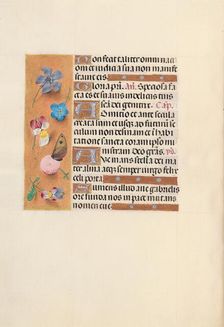 Non fecit taliter omni nati
oni et iudicia sua non manife
stauit eis
Gloria pr̄i. Añ. Speciosa fac
ta es et suauis in deliciis tuis
sancta dei genitrix. Cap.
Ab initio et ante secula
creata sum et usq̄ ad futurū se
culum non desinam et in habi
tatione sancta coram ipso mi
nistraui Deo gr̄as.
Aue maris stella dei ma
ter alma atq̄ semper uirgo felix
celi porta
Sumens illud aue gabrielis
ore funda nos in pace mutans
nomen eue